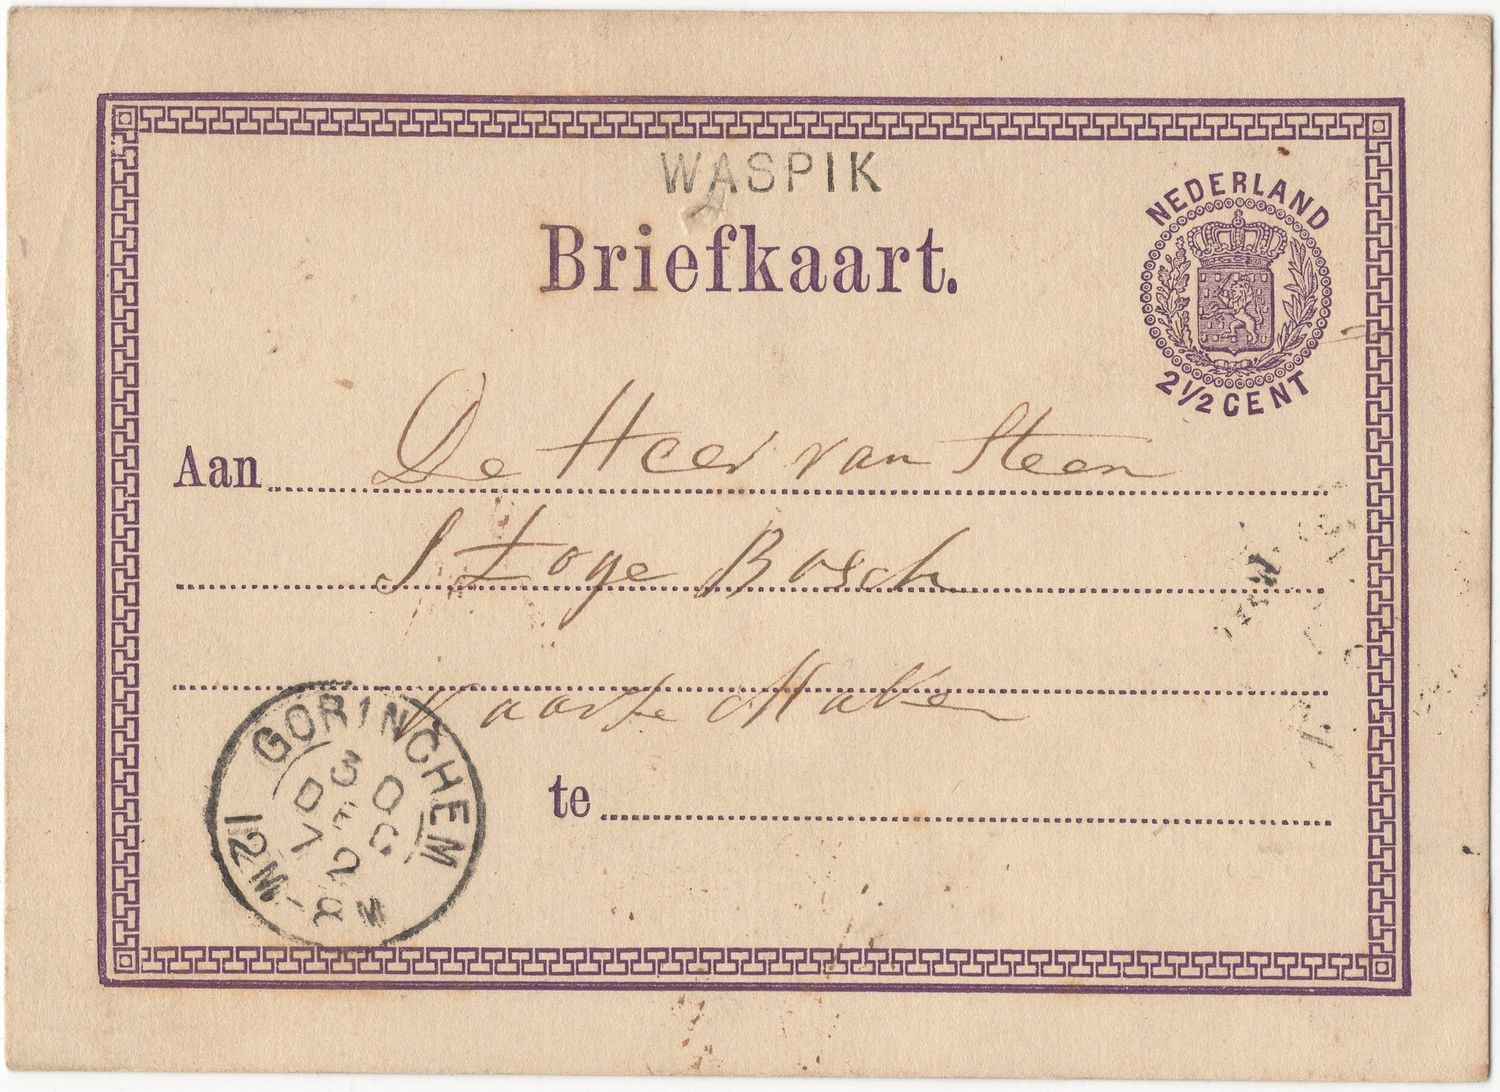 WASPIK
Briefkaart.
NEDERLAND
2½ CENT
Aan De Heer van Steen
Bosch
te
GORINCHEM
30
DEC
72
12M-8M